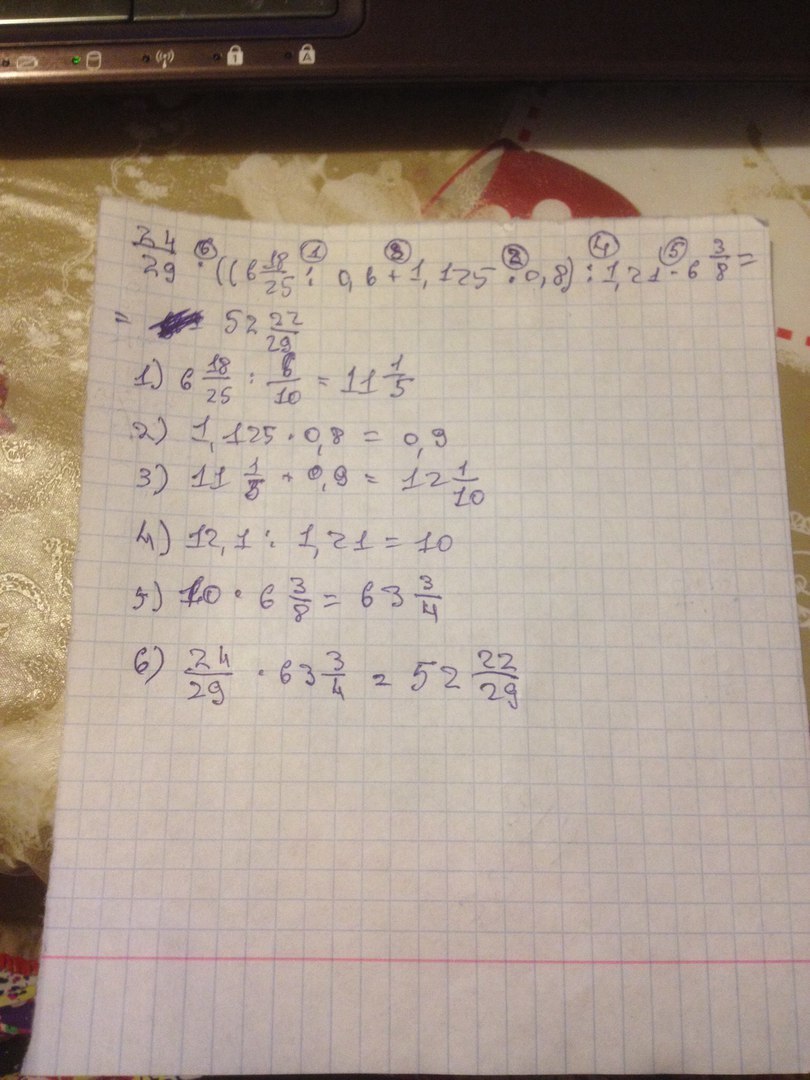 24/29 ⑥· ((6 18/25 ①: 0,6 ③+ 1,125 ②· 0,8) ④: 1,21 ⑤· 6 3/8 =
= 52 22/29
1) 6 18/25 : 6/10 = 11 1/5
2) 1,125 · 0,8 = 0,9
3) 11 1/5 + 0,9 = 12 1/10
4) 12,1 : 1,21 = 10
5) 10 · 6 3/8 = 63 3/4
6) 24/29 · 63 3/4 = 52 22/29